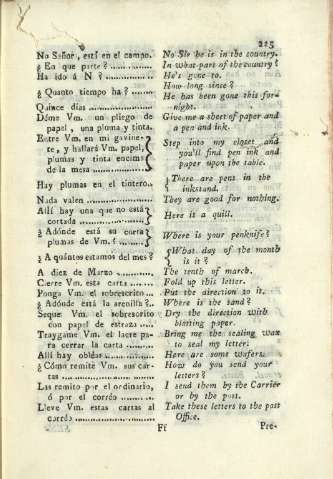 225
No Señor, está en el campo. No Sir he is in the country.
¿ En que parte? .............. In what part of the country?
Ha ido á N ? ................ He's gone to.
How long since?
¿ Quanto tiempo ha? ...... He has been gone this for-
Quince días .................. night.
Déme Vm. un pliego de Give me a sheet of paper and
papel, una pluma y tinta. a pen and ink.
Entre Vm. en mi gavine- Step into my closet and
te, y hallará Vm. papel, you'll find pen ink and
plumas y tinta encima paper upon the table.
de la mesa ..................
Hay plumas en el tintero.. There are pens in the
inkstand.
Nada valen .................. They are good for nothing.
Allí hay una que no está Here is a quill.
cortada ....................
¿ Adónde está su corta Where is your penknife?
plumas de Vm. ? ........
¿ A quántos estamos del mes? What day of the month
is it?
A diez de Marzo ............ The tenth of march.
Cierre Vm. esta carta ...... Fold up this letter.
Ponga Vm. el sobrescrito... Put the direction to it.
¿ Adónde está la arenilla ?.. Where is the sand?
Seque Vm. el sobrescrito Dry the direction with
con papel de estraza .... blotting paper.
Traygame Vm. el lacre pa- Bring me the sealing wax
ra cerrar la carta ........ to seal my letter.
Allí hay obleas ............ Here are some wafers.
¿ Cómo remite Vm. sus car- How do you send your
tas ........................ letters?
Las remito por el ordinario, I send them by the Carrier
ó por el corréo ............ or by the post.
Lleve Vm. estas cartas al Take these letters to the post
corréo .................... Office.
Ff Pre-